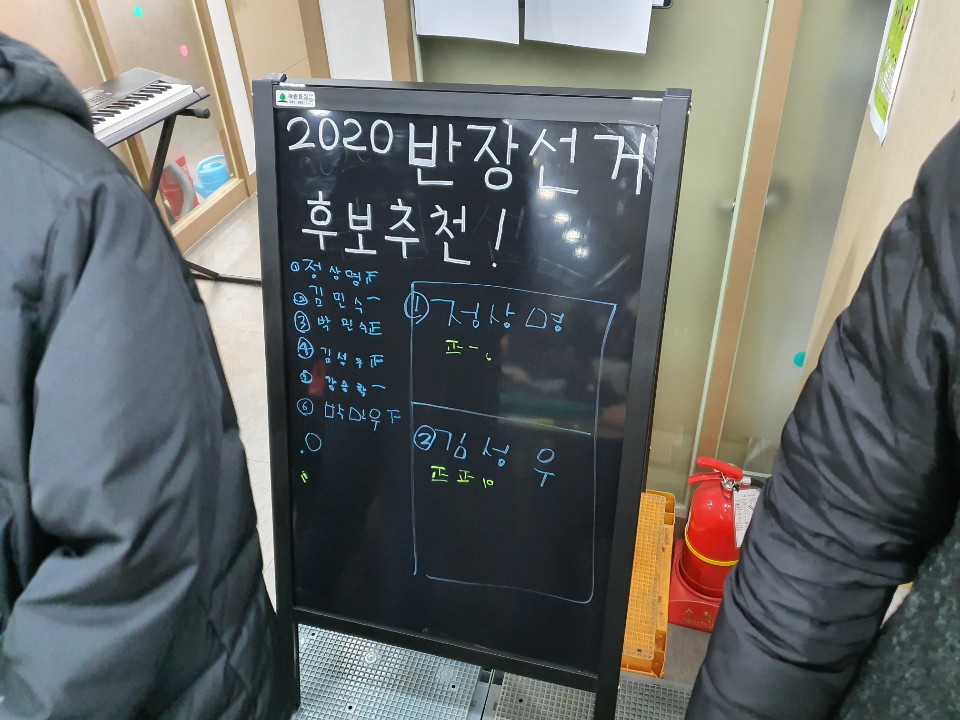 2020 반장선거
후보추천!
① 정상명 正
② 김민수 一
③ 박민수 正
④ 김성우 正
⑤ 강승학 一
⑥ 박마우 下
① 정상명
正一 6
② 김성우
正正 10